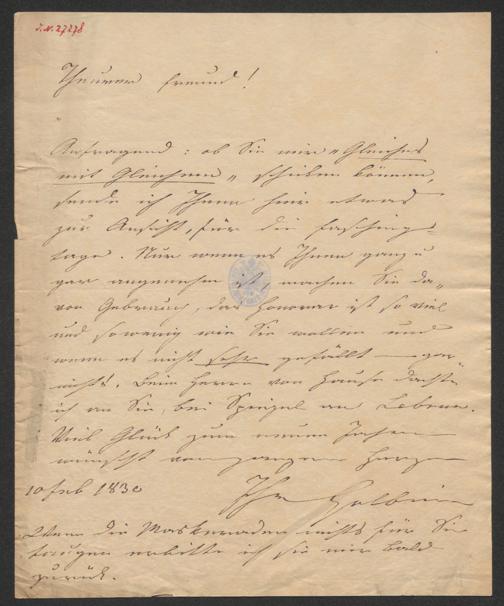 J.N. 27278
Theurer Freund!
Anfragend: ob Sie mir "Gleiches
mit Gleichem" schicken können,
sende ich Ihnen hier etwas
zur Ansicht, für die Faschings-
tage. Nur wenn es Ihnen ganz u
gar angenehm ist, machen Sie da-
von Gebrauch, das Honorar ist so viel
und so wenig wie Sie wollen und
wenn es nicht sehr gefällt — gar
nichts. Beim Herrn von Hause dachte
ich an Sie, bei Spiegel an
Viel Glück zum neuen Jahre
wünscht von ganzem Herzen
10 Feb 1830
Ihr Holbein
Wenn die Maskeraden nichts für Sie
taugen erbitte ich sie mir bald
zurück.